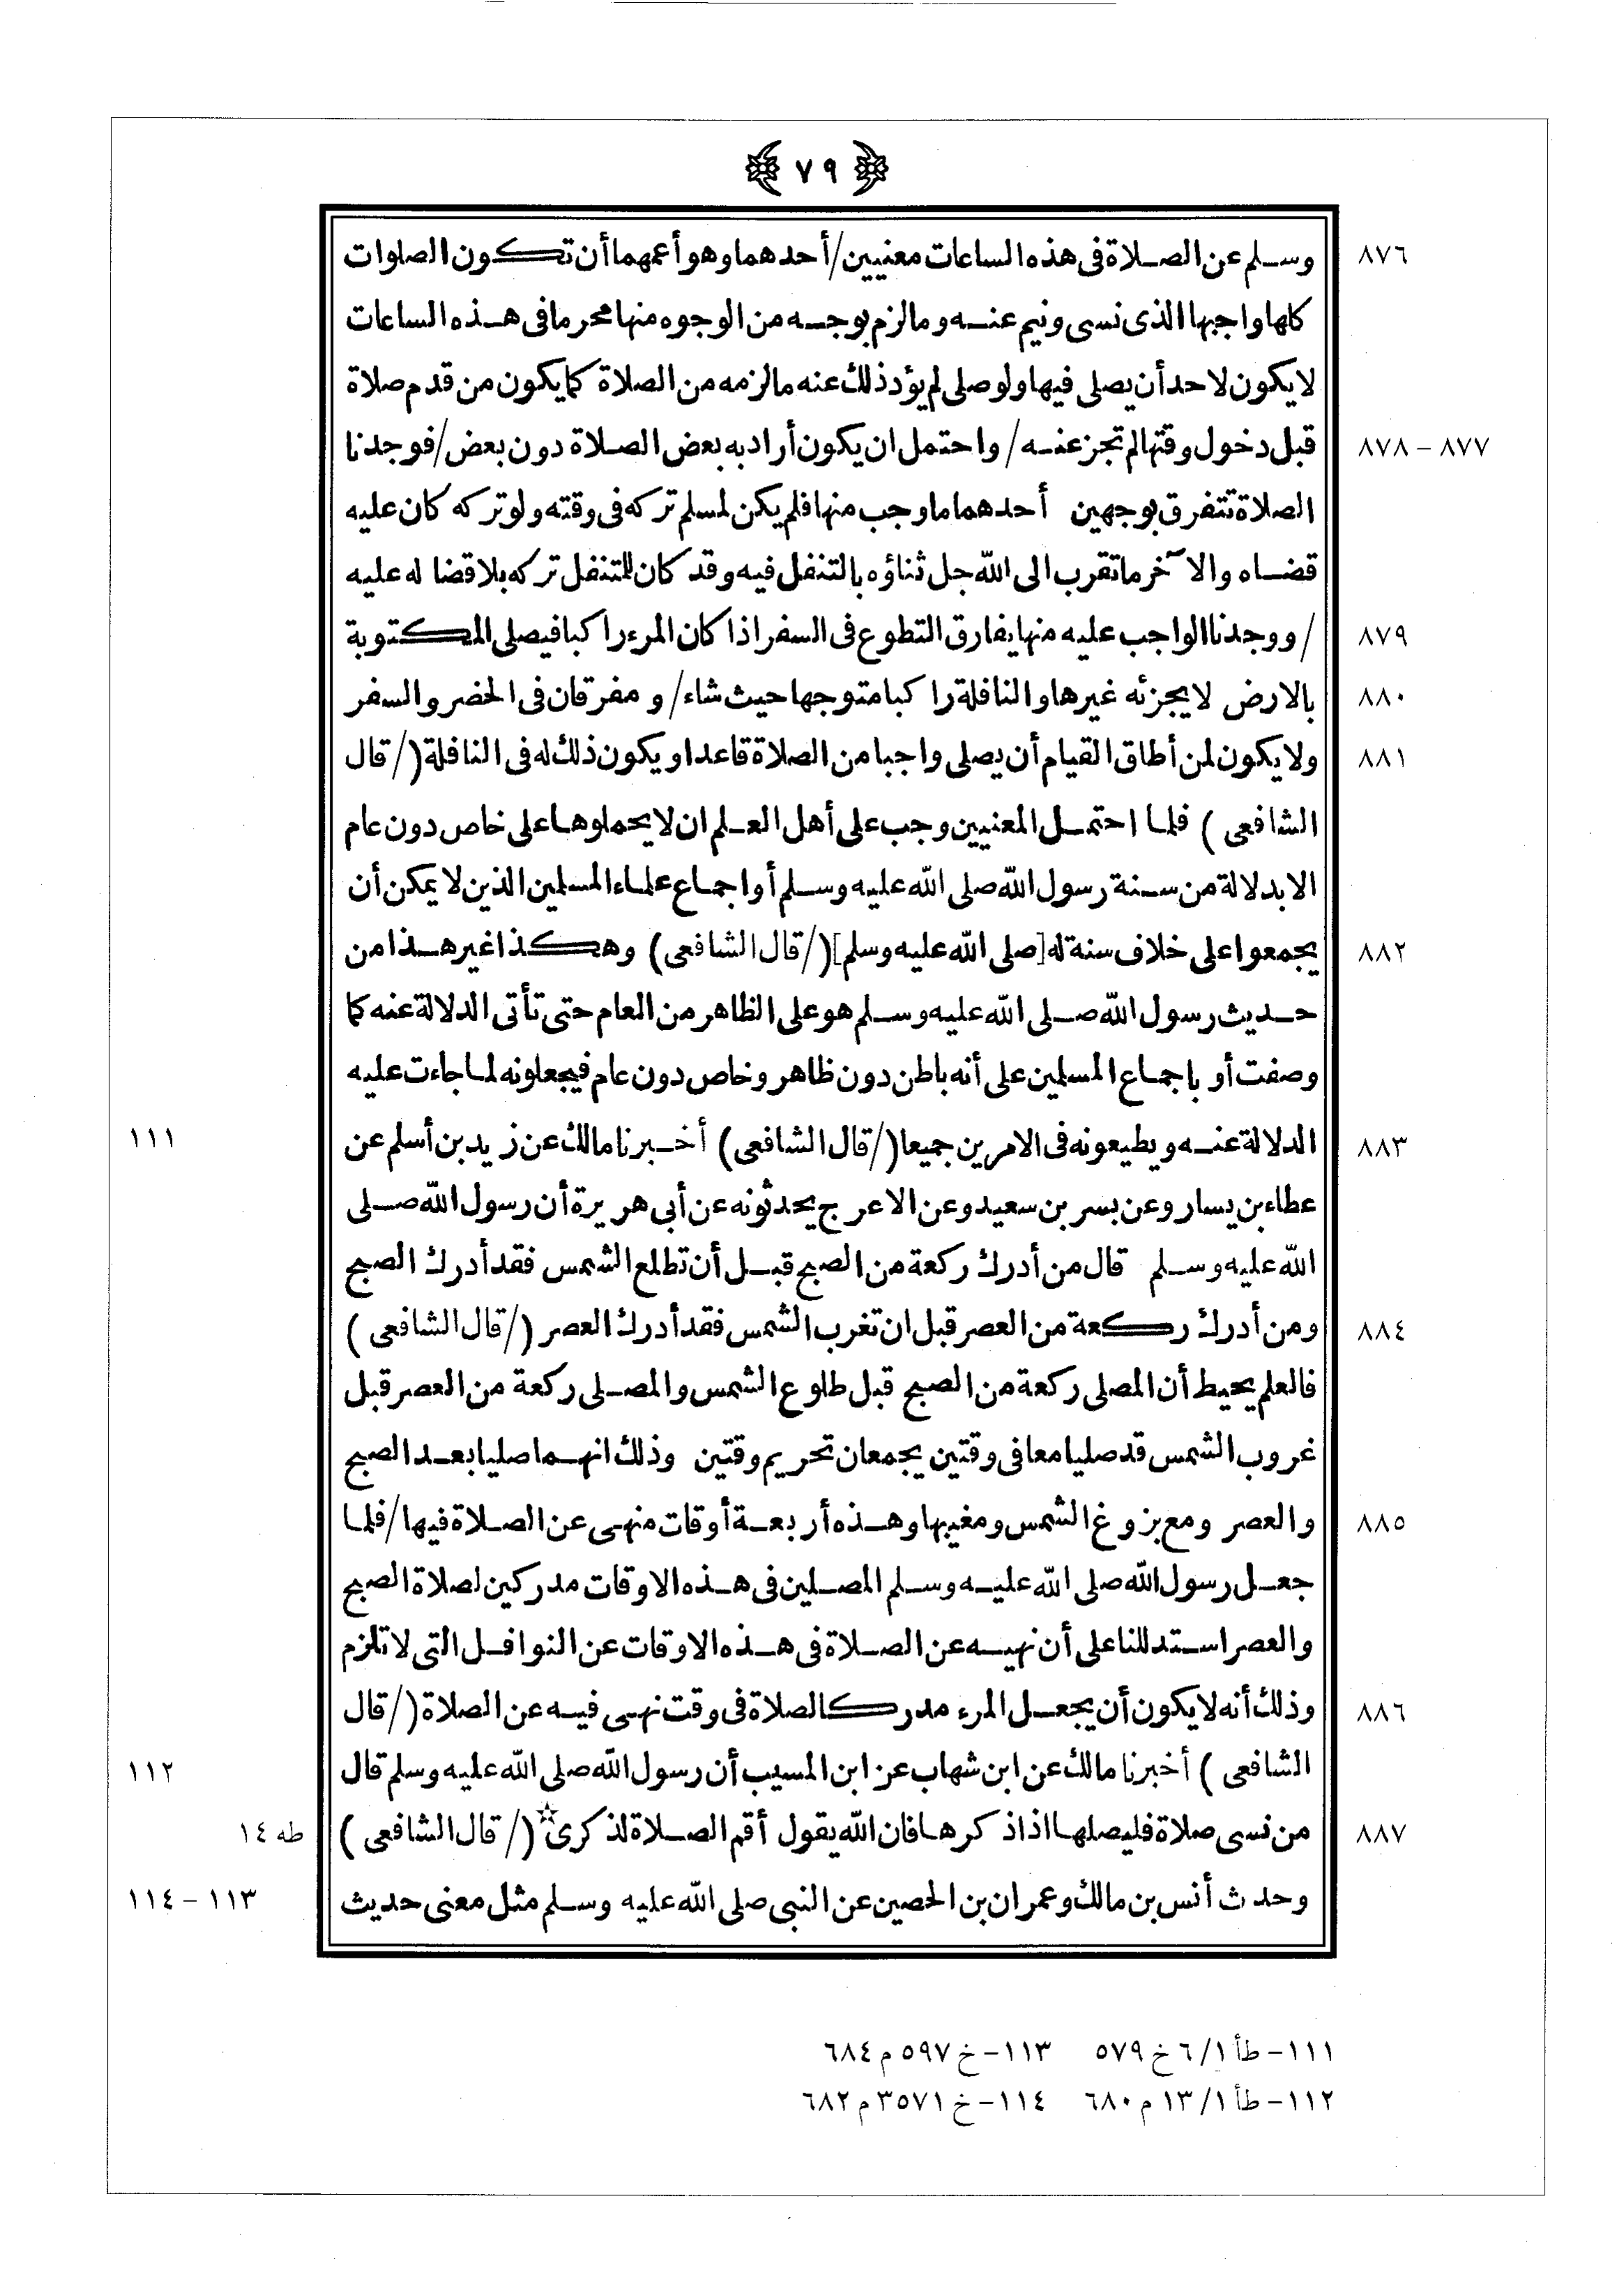 ﴿ ٧٩ ﴾
٨٧٦ وسلم عن الصلاة فى هذه الساعات معنيين/أحدهما وهو أعمهما أن تكون الصلوات
كلها واجبها الذى نسى ونيم عنه وما لزم بوجه من الوجوه منها محرما فى هذه الساعات
لا يكون لاحد أن يصلى فيها ولو صلى لم يؤد ذلك عنه ما لزمه من الصلاة كما يكون من قدم صلاة
٨٧٧ – ٨٧٨ قبل دخول وقتها لم تجز عنه/واحتمل ان يكون أراد به بعض الصلاة دون بعض/فوجدنا
الصلاة تتفرق بوجهين أحدهما ما وجب منها فلم يكن لمسلم تركه فى وقته ولو تركه كان عليه
قضاه والآخر ما تقرب الى الله جل ثناؤه بالتنفل فيه وقد كان للمتنفل تركه بلا قضا له عليه
٨٧٩ /ووجدنا الواجب عليه منها يفارق التطوع فى السفر اذا كان المرء راكبا فيصلى المكتوبة
٨٨٠ بالارض لا يجزئه غيرها والنافلة راكبا متوجها حيث شاء/ومفرقان فى الحضر والسفر
٨٨١ ولا يكون لمن أطاق القيام أن يصلى واجبا من الصلاة قاعدا ويكون ذلك له فى النافلة (/قال
الشافعى) فلما احتمل المعنيين وجب على أهل العلم ان لا يحملوها على خاص دون عام
الا بدلالة من سنة رسول الله صلى الله عليه وسلم أو اجماع علماء المسلمين الذين لا يمكن أن
٨٨٢ يجمعوا على خلاف سنة له [صلى الله عليه وسلم] (/قال الشافعى) وهكذا غير هذا من
حديث رسول الله صلى الله عليه وسلم هو على الظاهر من العام حتى تأتى الدلالة عنه كما
وصفت أو باجماع المسلمين على أنه باطن دون ظاهر وخاص دون عام فيجعلونه لما جاءت عليه
٨٨٣ الدلالة عنه ويطيعونه فى الامرين جميعا (/قال الشافعى) أخبرنا مالك عن زيد بن أسلم عن ١١١
عطاء بن يسار وعن بسر بن سعيد وعن الاعرج يحدثونه عن أبى هريرة أن رسول الله صلى
الله عليه وسلم قال من أدرك ركعة من الصبح قبل أن تطلع الشمس فقد أدرك الصبح
٨٨٤ ومن أدرك ركعة من العصر قبل ان تغرب الشمس فقد أدرك العصر (/قال الشافعى)
فالعلم يحيط أن المصلى ركعة من الصبح قبل طلوع الشمس والمصلى ركعة من العصر قبل
غروب الشمس قد صليا معا فى وقتين يجمعان تحريم وقتين وذلك انهما صليا بعد الصبح
٨٨٥ والعصر ومع بزوغ الشمس ومغيبها وهذه أربعة أوقات منهى عن الصلاة فيها/فلما
جعل رسول الله صلى الله عليه وسلم المصلين فى هذه الاوقات مدركين لصلاة الصبح
والعصر استدللنا على أن نهيه عن الصلاة فى هذه الاوقات عن النوافل التى لا تلزم
٨٨٦ وذلك أنه لا يكون أن يجعل المرء مدركا لصلاة فى وقت نهى فيه عن الصلاة (/قال
الشافعى) أخبرنا مالك عن ابن شهاب عن ابن المسيب أن رسول الله صلى الله عليه وسلم قال ١١٢
٨٨٧ من نسى صلاة فليصلها اذا ذكرها فان الله يقول أقم الصلاة لذكرى☆ (/قال الشافعى) طه ١٤
وحدث أنس بن مالك وعمران بن الحصين عن النبى صلى الله عليه وسلم مثل معنى حديث ١١٣ – ١١٤
١١١– طأ ٦/١ خ ٥٧٩ ١١٣– خ ٥٩٧ م ٦٨٤
١١٢– طأ ١٣/١ م ٦٨٠ ١١٤– خ ٣٥٧١ م ٦٨٢